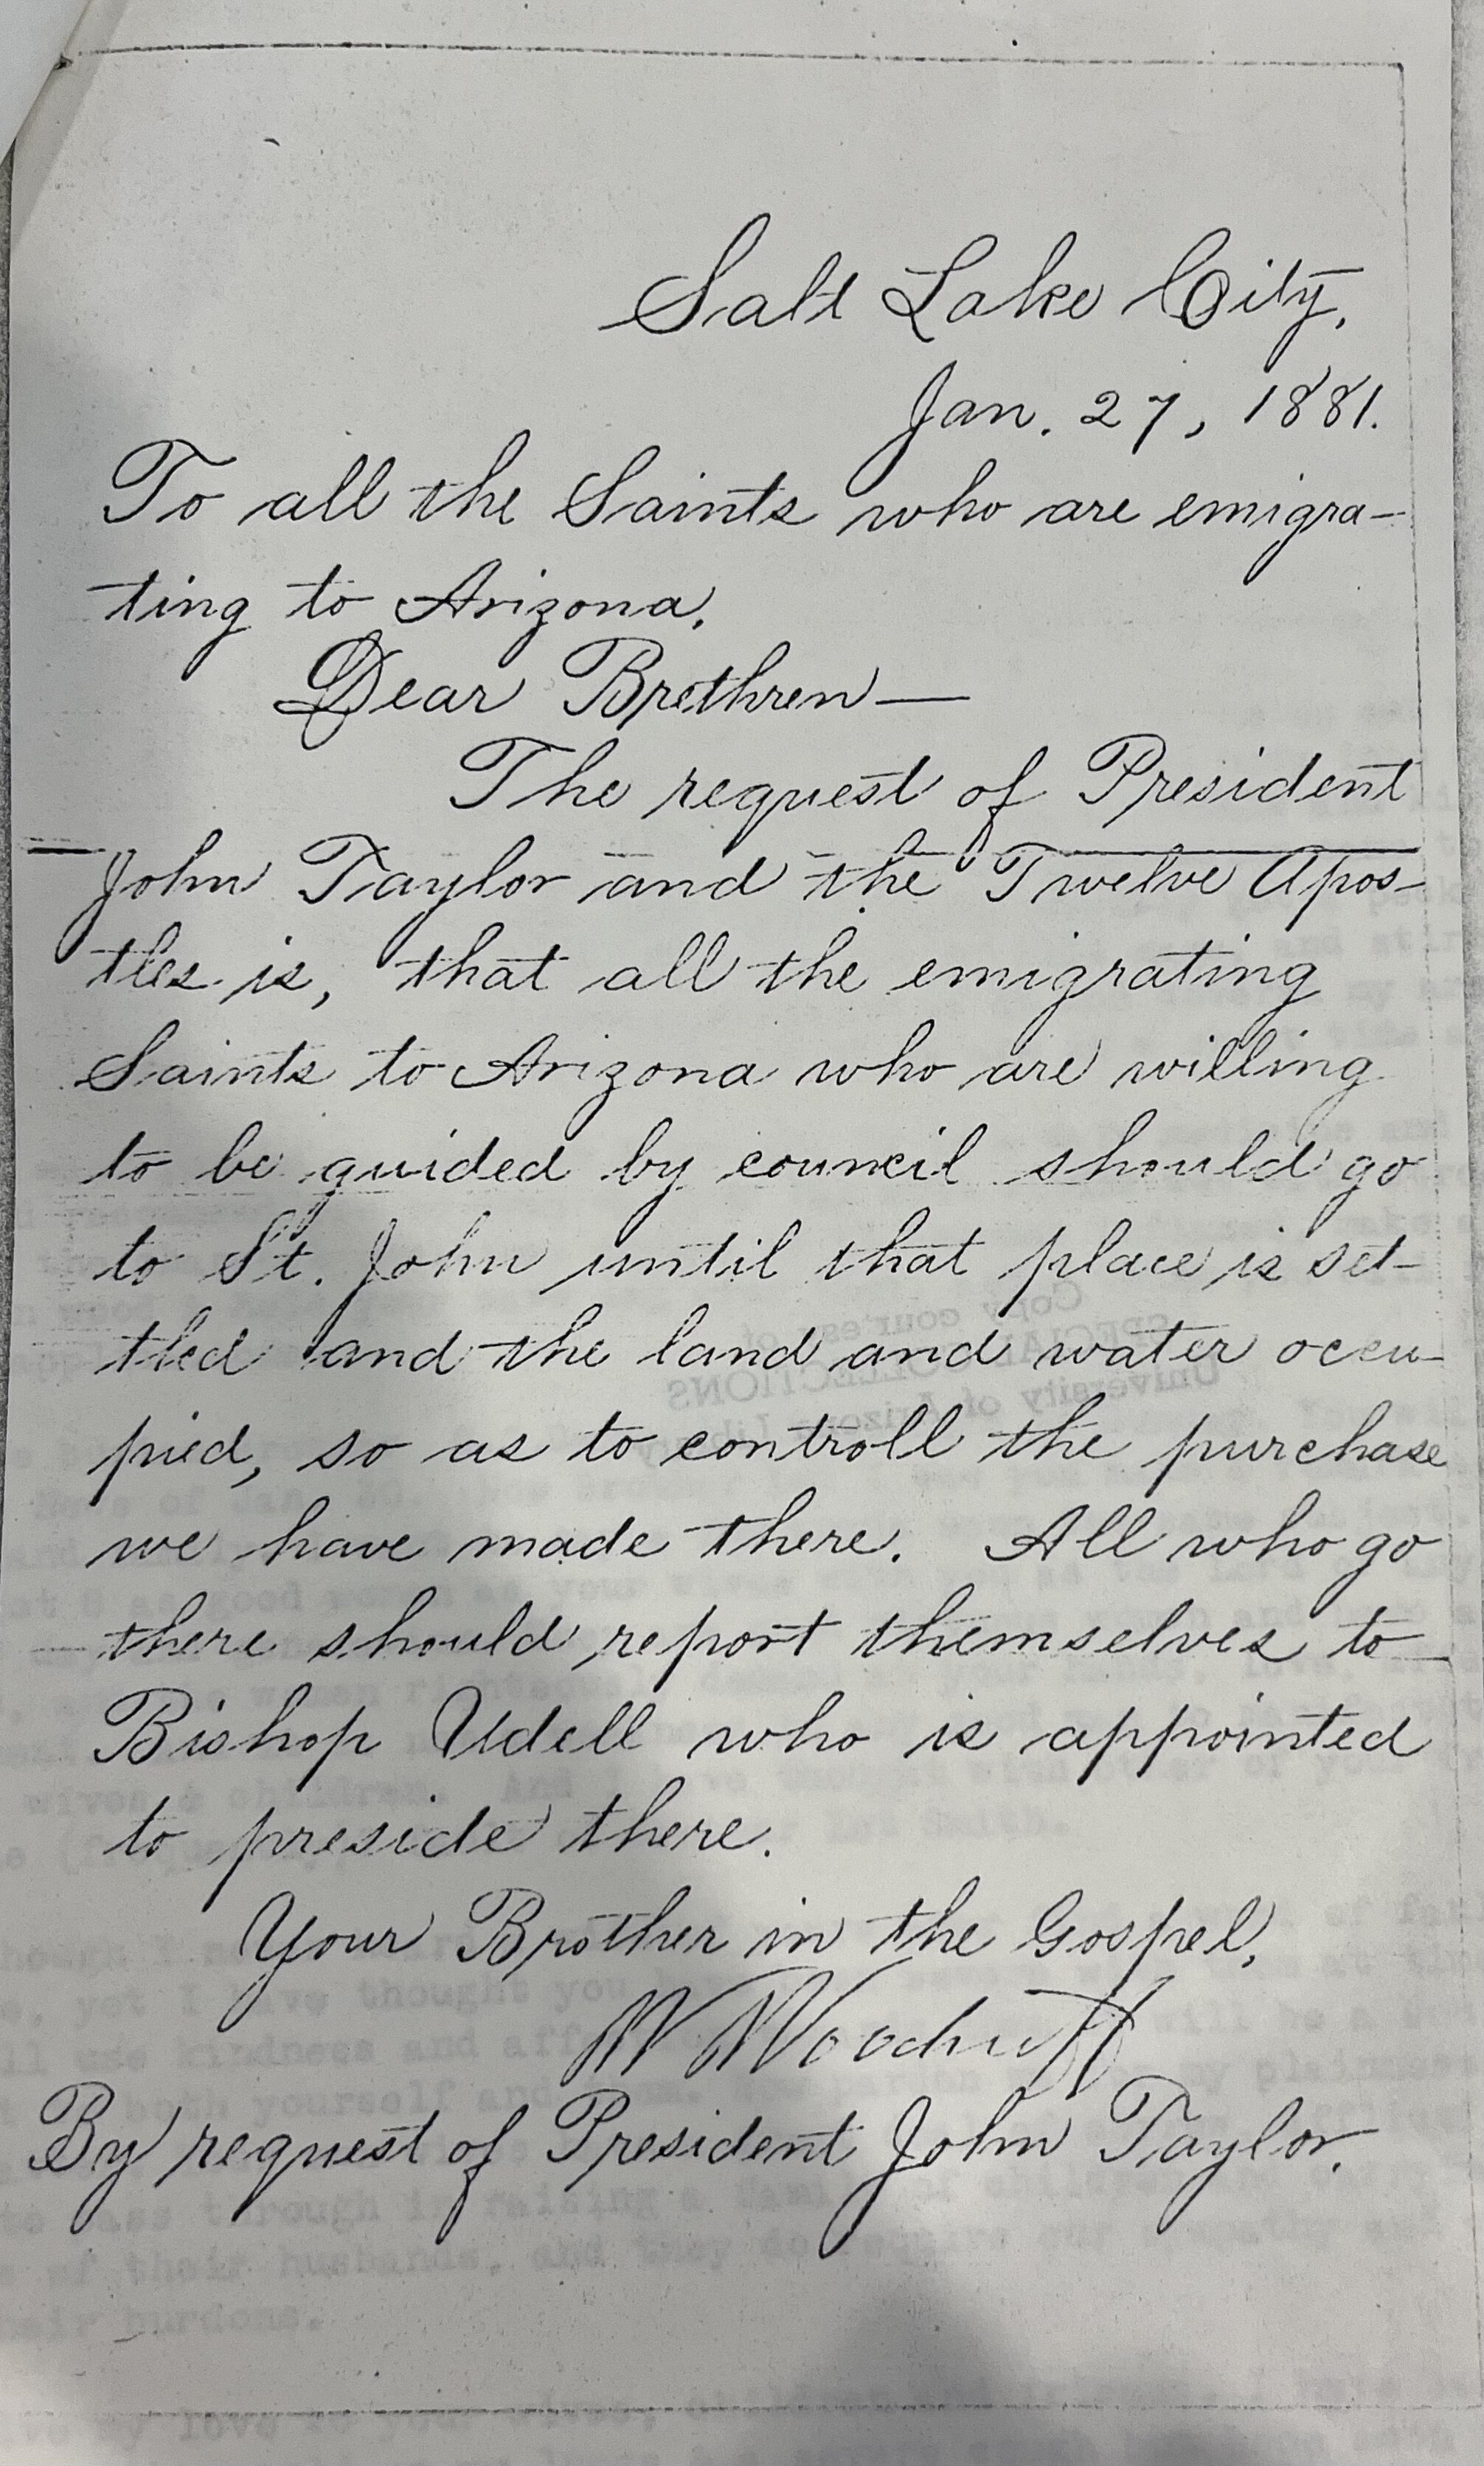 Salt Lake City,
Jan. 27, 1881.
To all the Saints who are emigra-
ting to Arizona.
Dear Brethren—
The request of President
John Taylor and the Twelve Apos-
tles is, that all the emigrating
Saints to Arizona who are willing
to be guided by council should go
to St. John until that place is set-
tled and the land and water occu-
pied, so as to controll the purchase
we have made there. All who go
there should report themselves to
Bishop Udell who is appointed
to preside there.
Your Brother in the Gospel,
W Woodruff
By request of President John Taylor.
Copy courtesy of
SPECIAL COLLECTIONS
University of Arizona